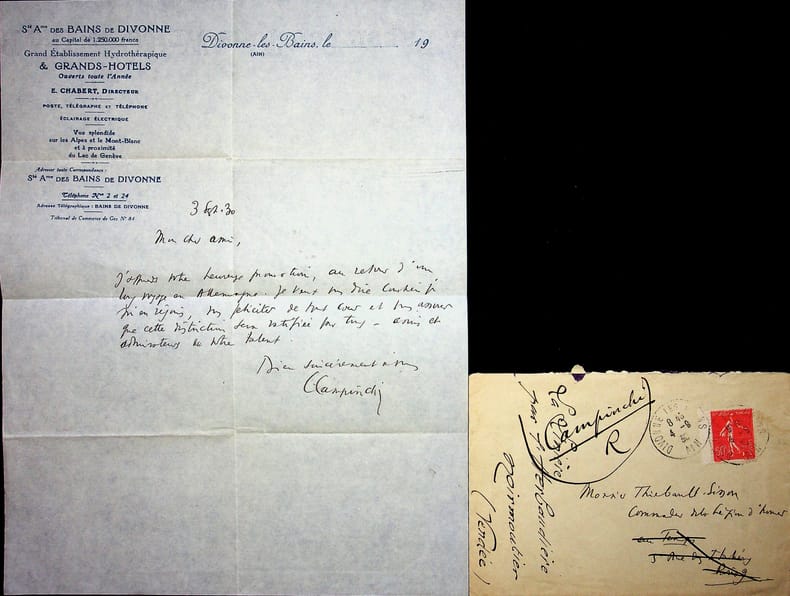 Sté Ame DES BAINS DE DIVONNE
au Capital de 1.250.000 francs
Grand Établissement Hydrothérapique
& GRANDS-HOTELS
Ouverts toute l'Année
E. CHABERT, DIRECTEUR
POSTE, TÉLÉGRAPHE ET TÉLÉPHONE
ÉCLAIRAGE ÉLECTRIQUE
Vue splendide
sur les Alpes et le Mont-Blanc
et à proximité
du Lac de Genève
Adresser toute Correspondance :
Sté Ame DES BAINS DE DIVONNE
Téléphone Nos 2 et 24
Adresse Télégraphique : BAINS DE DIVONNE
Tribunal de Commerce de Gex N° 84
Divonne-les-Bains, le 19
(AIN)
3 Sept. 30
Mon cher ami,
J'apprends votre heureuse promotion, au retour d'un
long voyage en Allemagne. Je veux vous dire combien je
m'en réjouis, vous féliciter de tout cœur et vous assurer
que cette distinction sera ratifiée par tous - amis et
admirateurs de votre talent.
Bien sincèrement à vous
CCampinchi
Campinchi
R
La
par l'Herbaudière
Noirmoutier
(Vendée)
DIVONNE LES BAINS
AIN
Monsieur Thiébault-Sisson
Commandeur de la Légion d'honneur
au Temps
5 Rue des Italiens
Paris